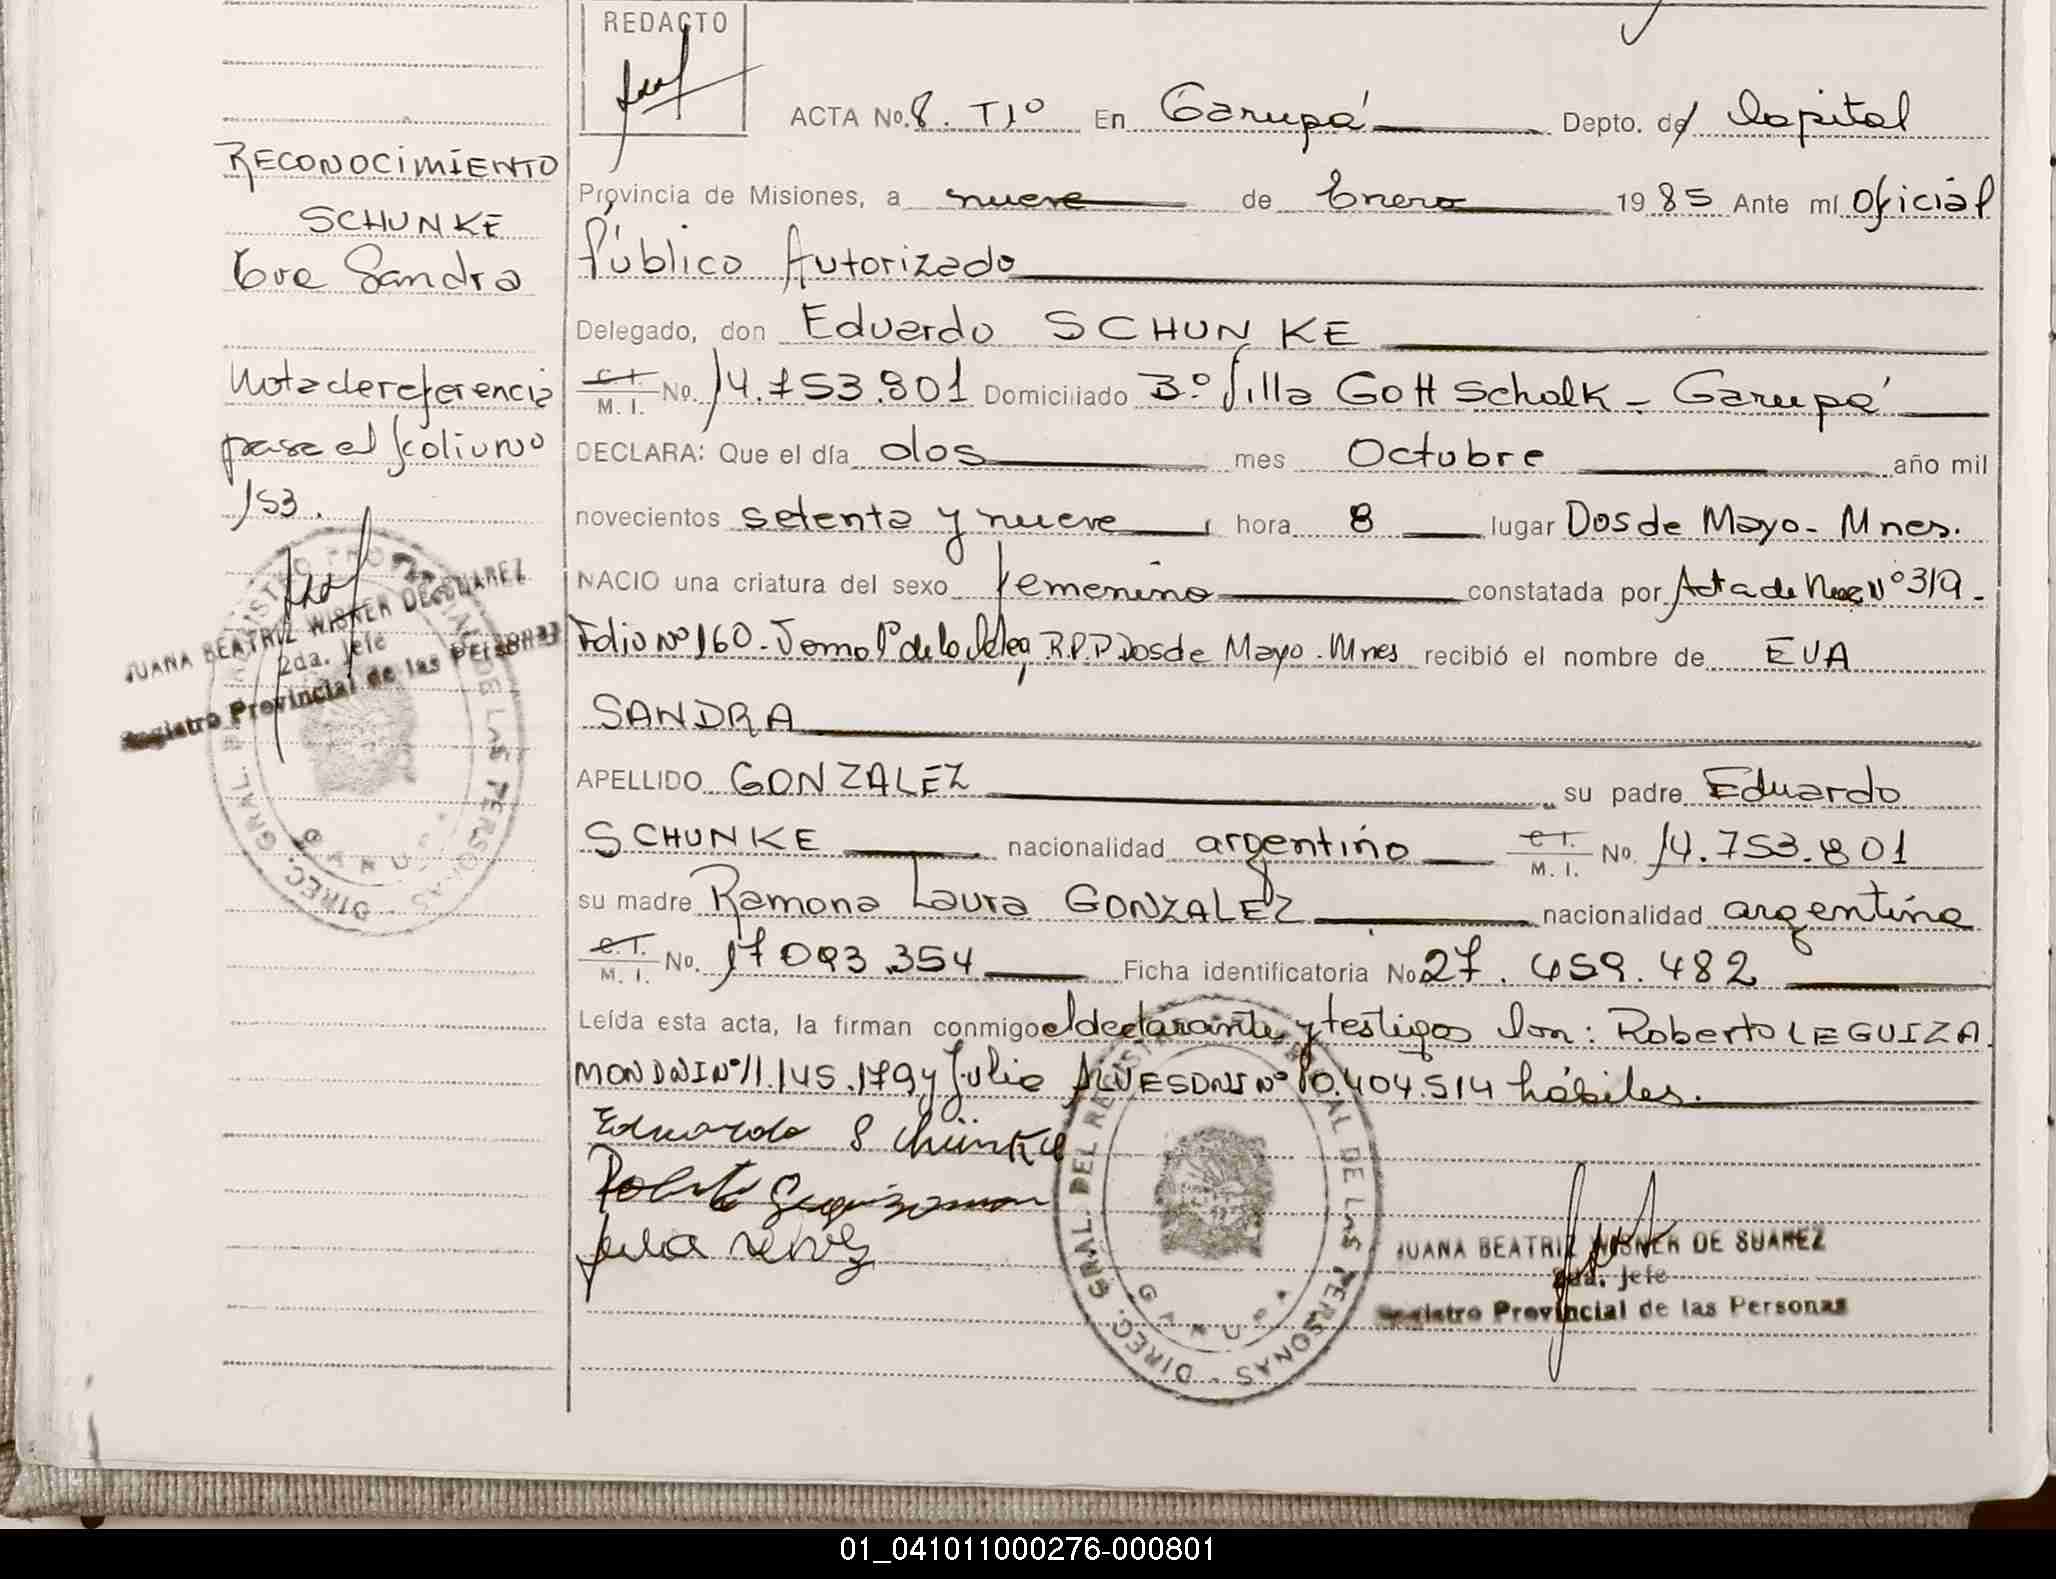 REDACTO
ACTA No. 8. T1º En Garupá Depto. de Capital
RECONOCIMIENTO
SCHUNKE
Eva Sandra
Provincia de Misiones, a nueve de Enero 1985 Ante mí Oficial
Público Autorizado
Delegado, don Eduardo SCHUNKE
Nota de referencia
pasa al folio nº
153.
C. I. M. I. No. 14.753.801 Domiciliado Bº Villa Gottschalk - Garupá
DECLARA: Que el día dos mes Octubre año mil
novecientos setenta y nueve, hora 8 lugar Dos de Mayo - Mnes.
NACIO una criatura del sexo femenino constatada por Acta de Nac Nº 319 -
Folio Nº 160 - Tomo 1º de la Deleg R.P.P Dos de Mayo - Mnes recibió el nombre de EVA
SANDRA
APELLIDO GONZALEZ su padre Eduardo
SCHUNKE nacionalidad argentino C. I. M. I. No. 14.753.801
su madre Ramona Laura GONZALEZ nacionalidad argentina
C. I. M. I. No. 17 093.354 Ficha identificatoria No 27.459.482
Leída esta acta, la firman conmigo el declarante y testigos Don: Roberto LEGUIZA
MON DNI Nº 11.145.179 y Julia ALVES DNI Nº 10.404.514 hábiles.
Eduardo Schünke
Roberto Leguizamon
JUANA BEATRIZ WISNER DE SUAREZ
2da. Jefe
Registro Provincial de las Personas
DIREC. GRAL. DEL REGISTRO PROVINCIAL DE LAS PERSONAS
GARUPA
JUANA BEATRIZ WISNER DE SUAREZ
2da. Jefe
Registro Provincial de las Personas
DIREC. GRAL. DEL REGISTRO PROVINCIAL DE LAS PERSONAS
GARUPA
01_041011000276-000801